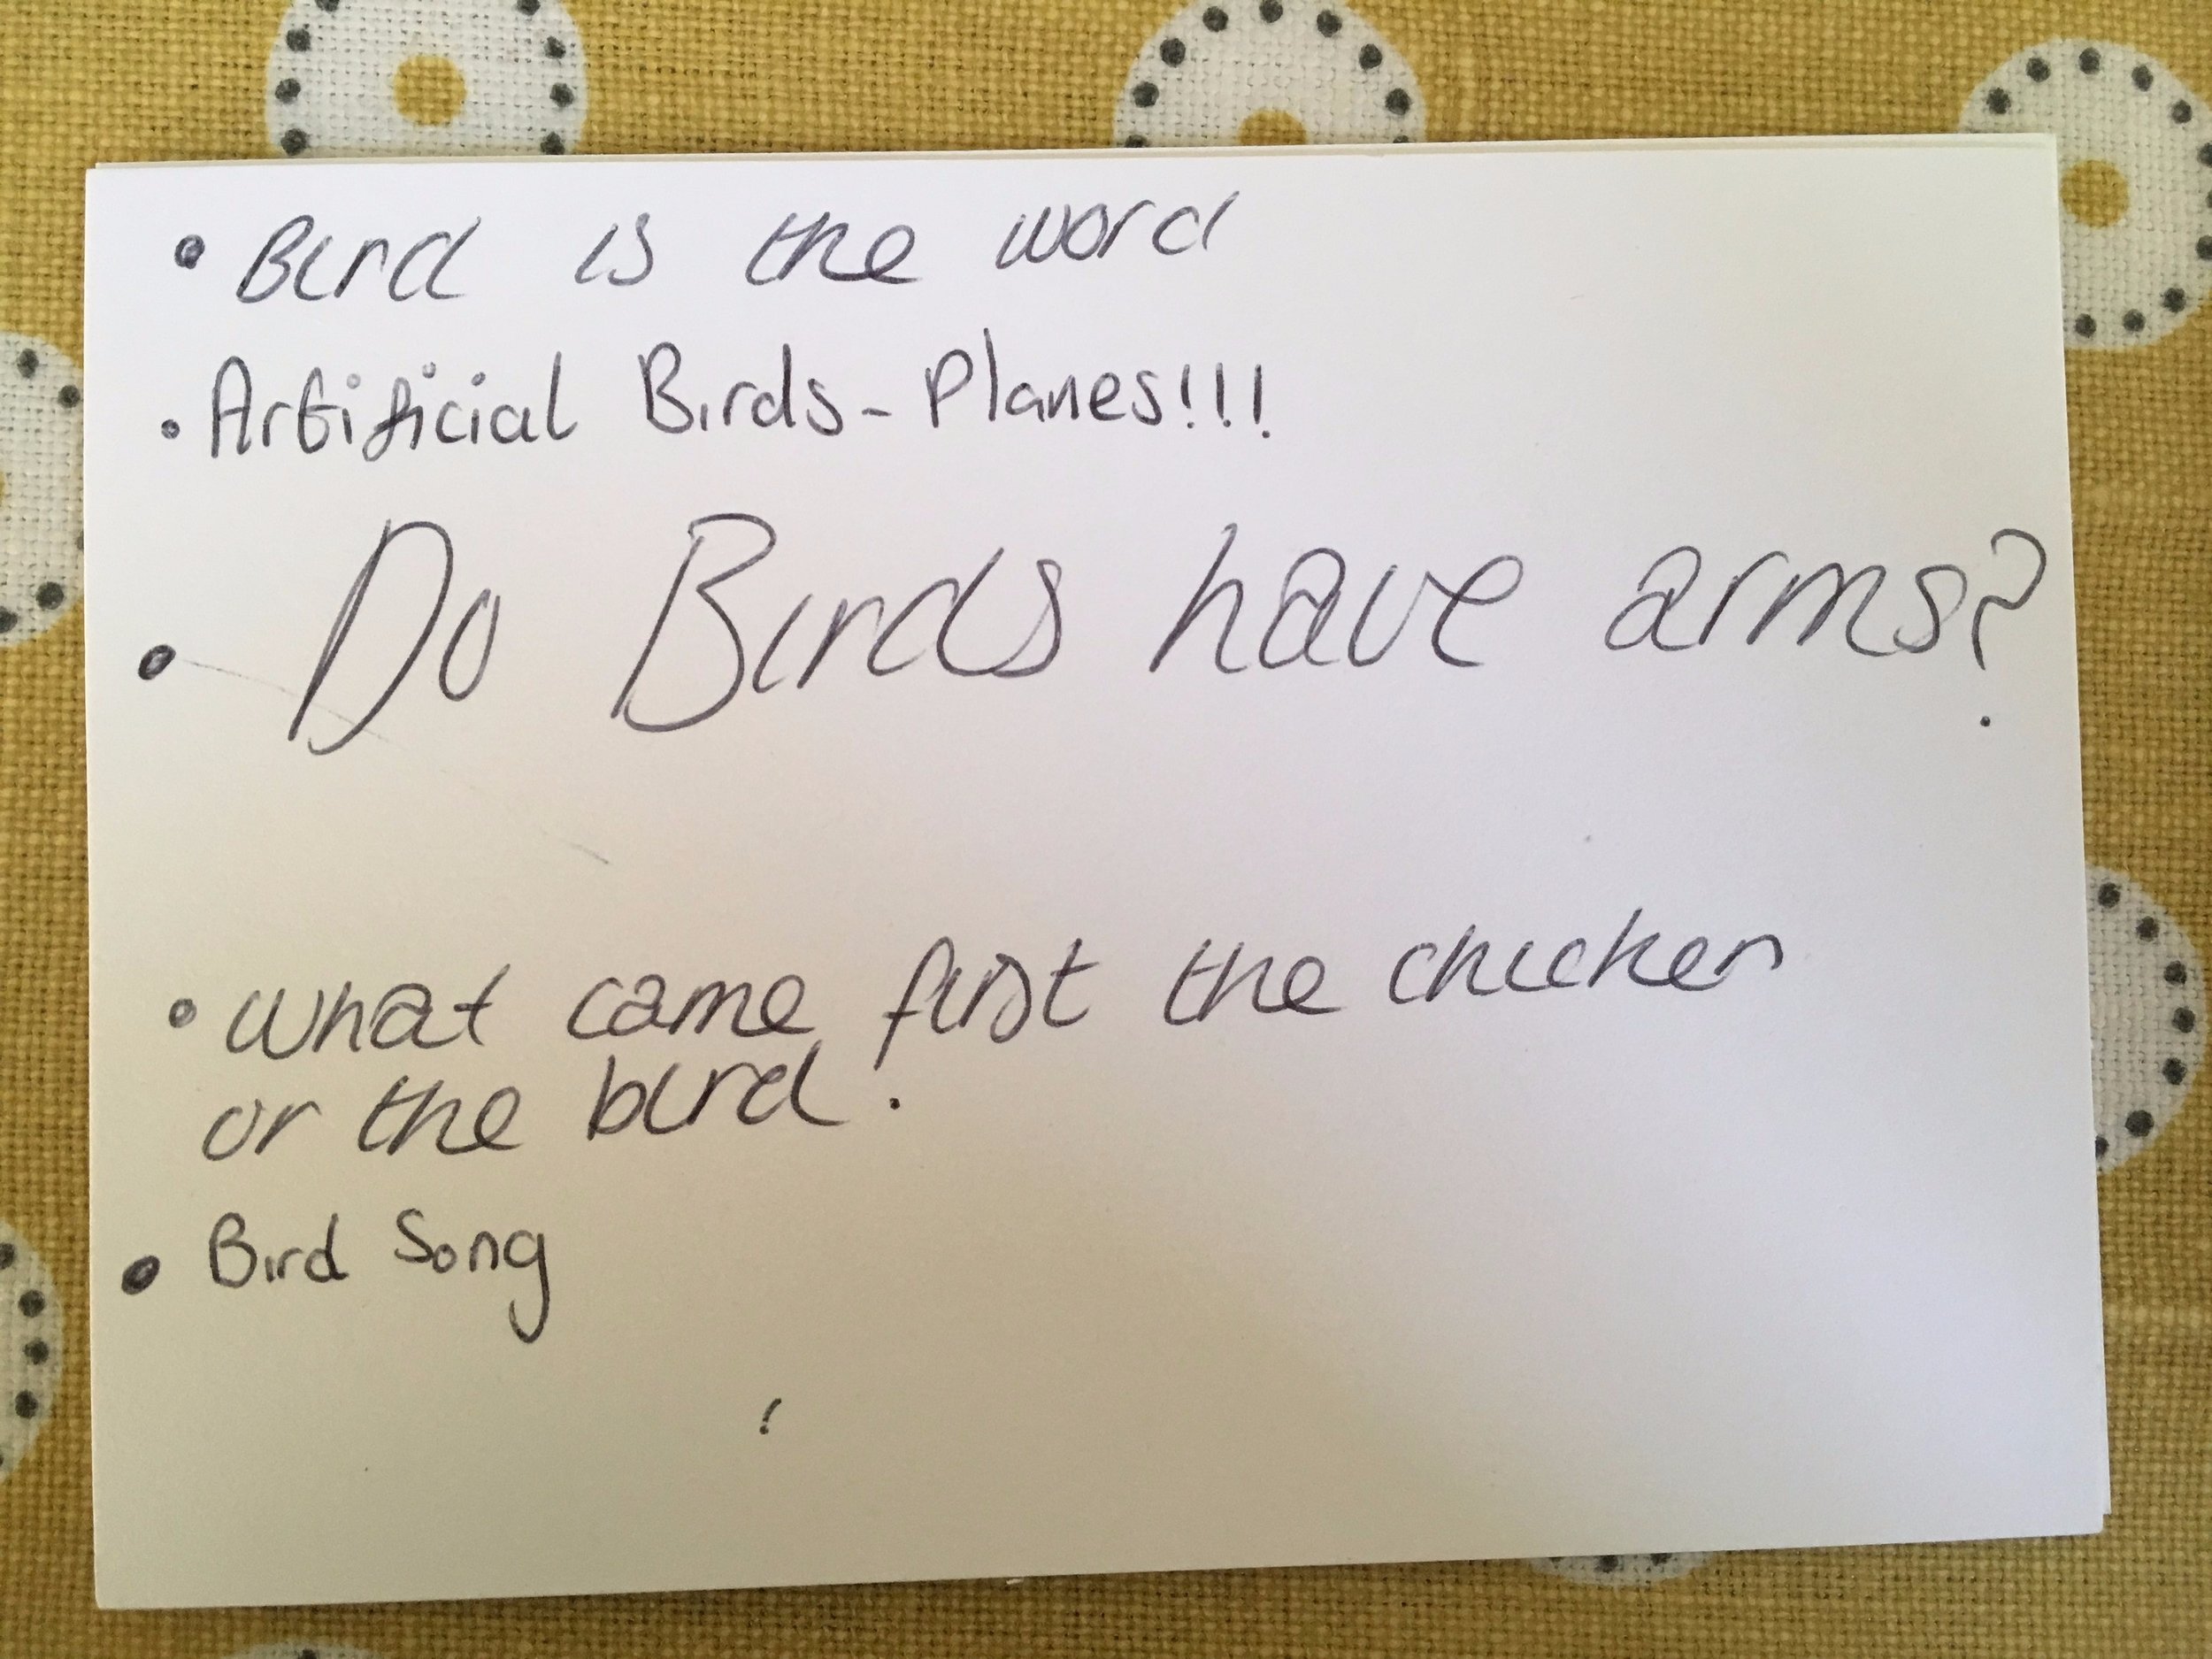 • Bird is the word
• Artificial Birds - Planes!!!
• Do Birds have arms?
• What came first the chicken
or the bird.
• Bird Song